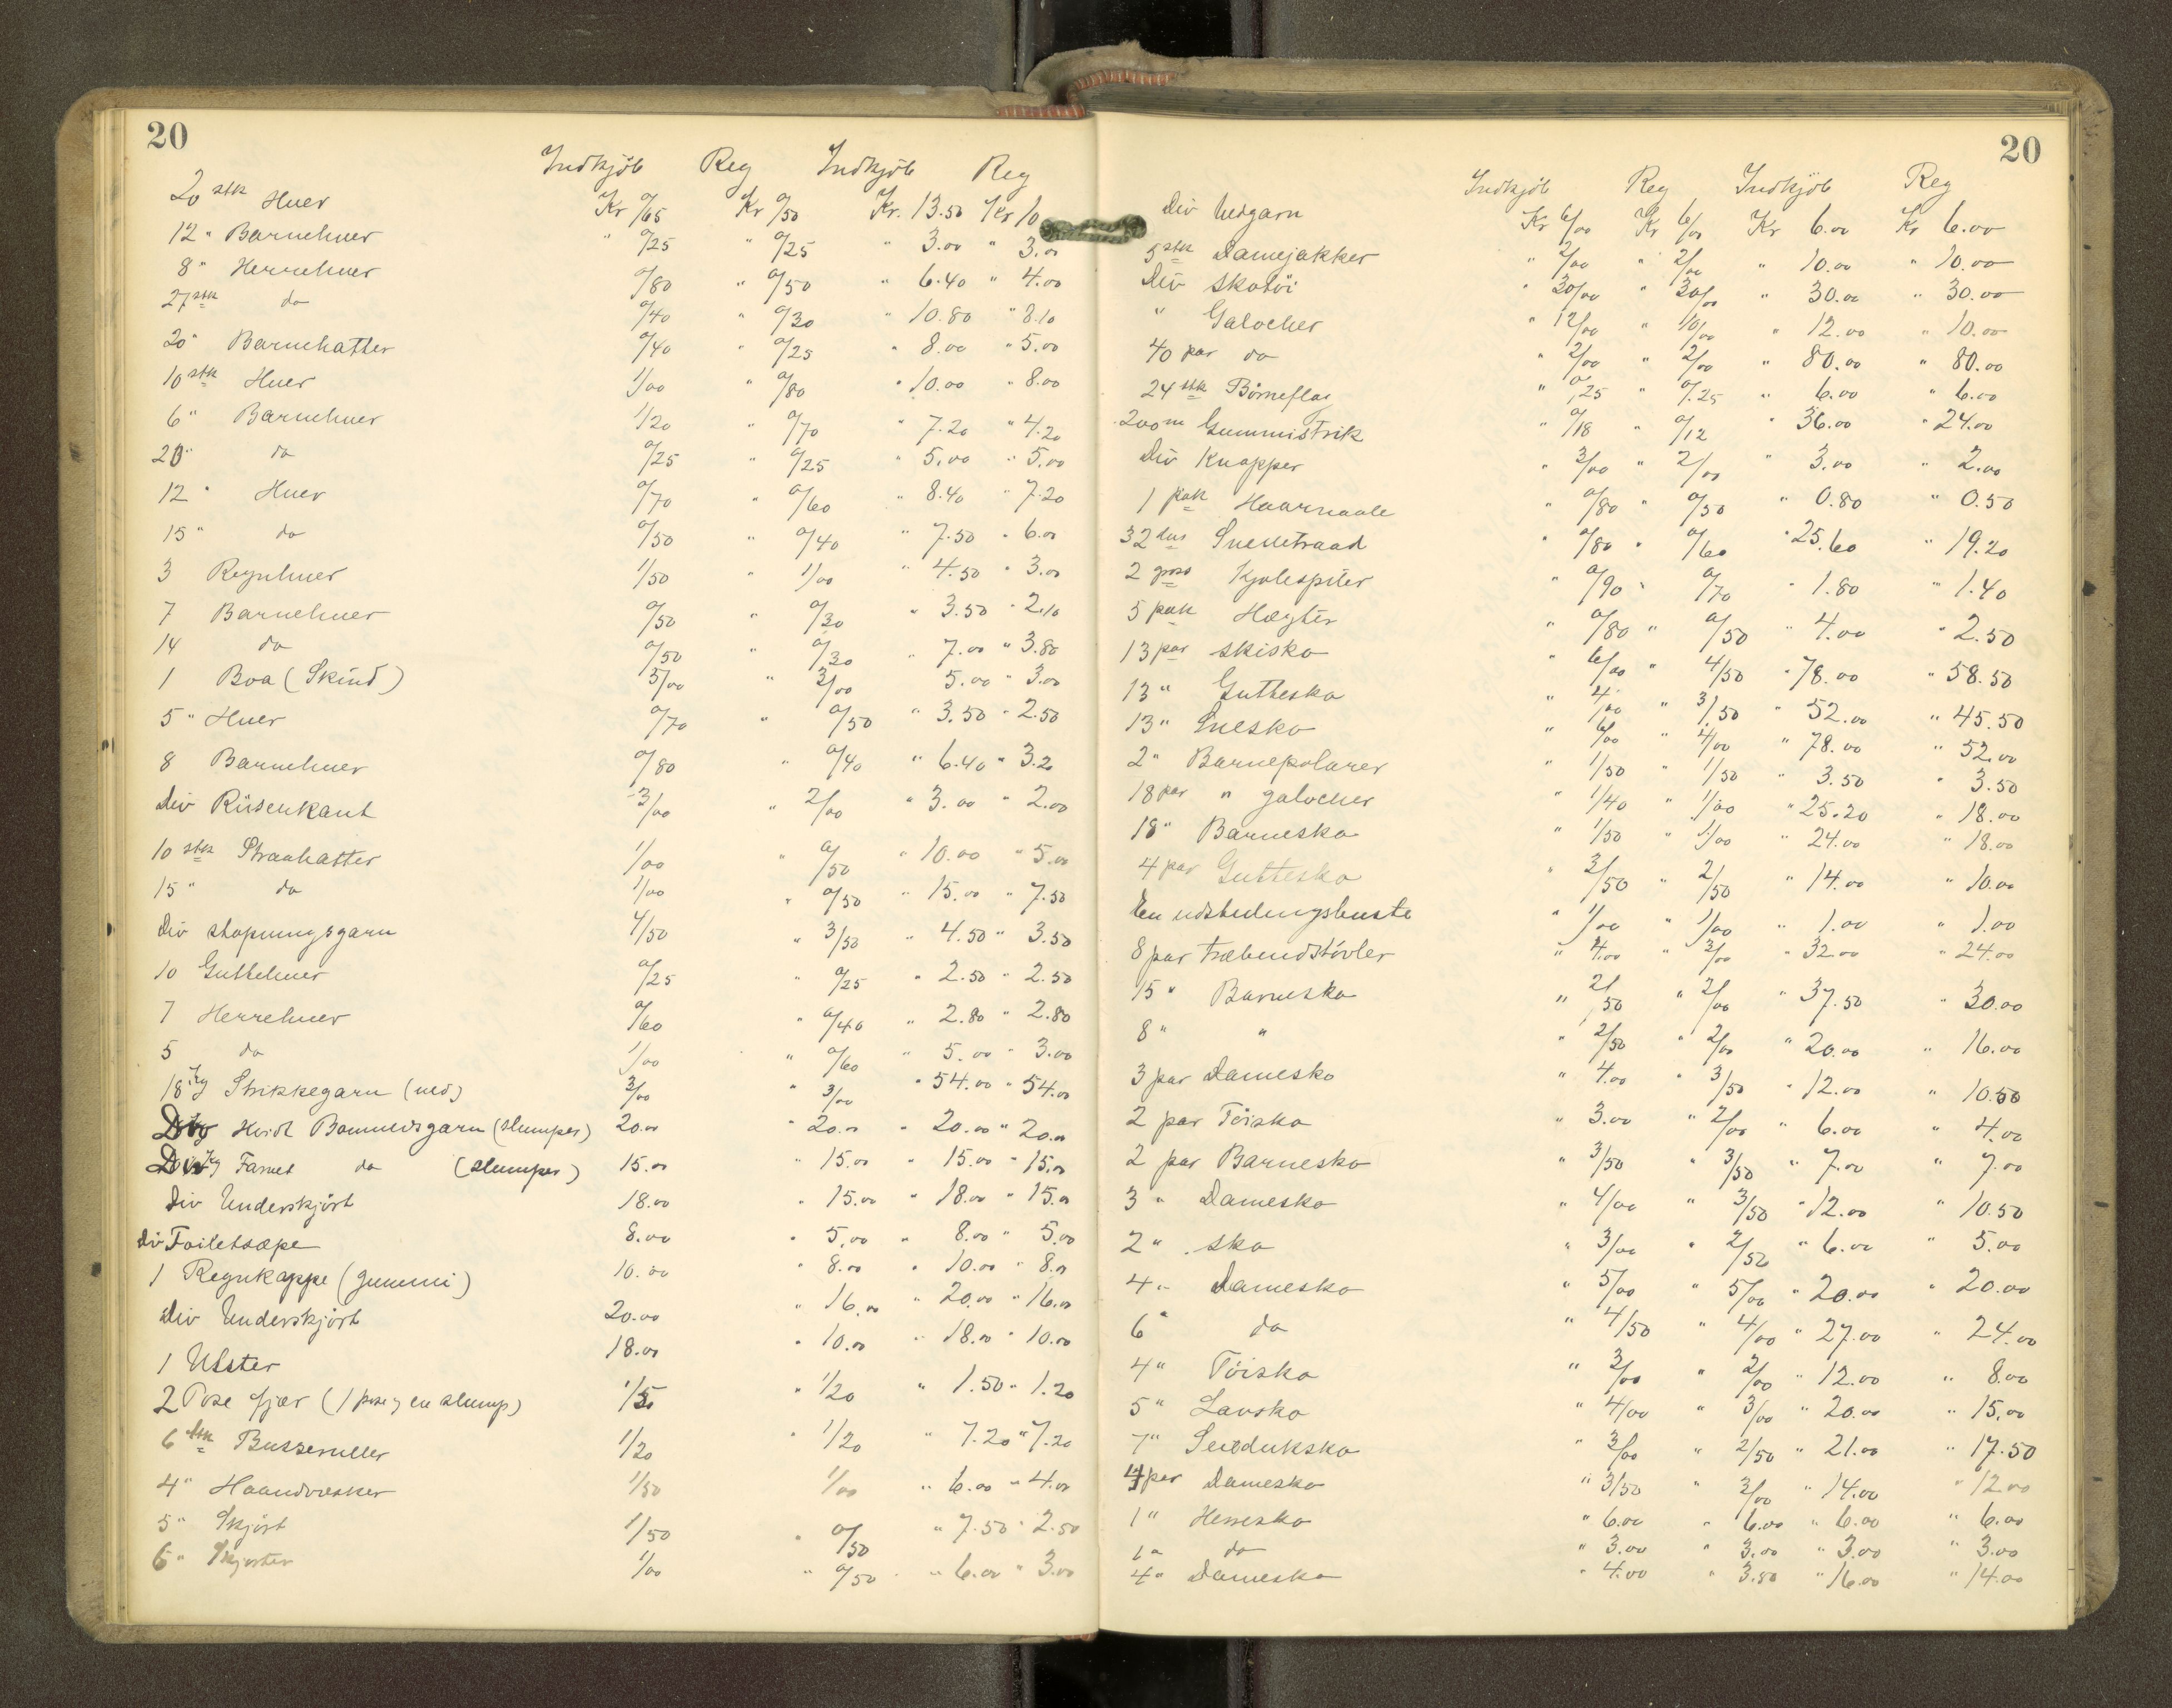 20
Indkjöb Reg Indkjöb Reg
20 stk Huer Kr 0/65 Kr 0/50 Kr. 13.50 Kr 10
12 " Barnehuer " 0/25 " 0/25 " 3.00 " 3.00
8 " Herrehuer 0/80 " 0/50 " 6.40 " 4.00
27 stk do 0/40 " 0/30 " 10.80 " 8.10
20 " Barnehatter 0/40 " 0/25 " 8.00 " 5.00
10 stk Huer 1/00 " 0/80 " 10.00 " 8.00
6 " Barnehuer 1/20 " 0/70 " 7.20 " 4.20
20 " do 0/25 " 0/25 " 5.00 " 5.00
12 " Huer 0/70 " 0/60 " 8.40 " 7.20
15 " do 0/50 " 0/40 " 7.50 " 6.00
3 Regnhuer 1/50 " 1/00 " 4.50 " 3.00
7 Barnehuer 0/50 " 0/30 " 3.50 " 2.10
14 do 0/50 " 0/30 " 7.00 " 3.80
1 Boa (Skind) 5/00 " 3/00 5.00 " 3.00
5 " Huer 0/70 " 0/50 " 3.50 " 2.50
8 Barnehuer 0/80 " 0/40 " 6.40 " 3.20
Div Rüsenkant 3/00 " 2/00 " 3.00 " 2.00
10 stk Straahatter 1/00 " 0/50 " 10.00 " 5.00
15 " do 1/00 " 0/50 " 15.00 " 7.50
Div stopningsgarn 4/50 " 3/50 " 4.50 " 3.50
10 Guttehuer 0/25 " 0/25 " 2.50 " 2.50
7 Herrehuer 0/60 " 0/40 " 2.80 " 2.80
5 do 1/00 " 0/60 " 5.00 " 3.00
18 kg Strikkegarn (uld) 3/00 " 3/00 " 54.00 " 54.00
Div Hvidt Bommuldsgarn (slumper) 20.00 " 20.00 " 20.00 " 20.00
Div Farvet do (slumper) 15.00 " 15.00 " 15.00 " 15.00
Div Underskjört 18.00 " 15.00 " 18.00 " 15.00
div Toiletsæpe 8.00 " 5.00 " 8.00 " 5.00
1 Regnkappe (gummi) 10.00 " 8.00 " 10.00 " 8.00
Div Underskjört 20.00 " 16.00 " 20.00 " 16.00
1 Ulster 18.00 " 10.00 " 18.00 " 10.00
2 Pose fjær (1 pose og en slump) 1/50 " 1/20 " 1.50 " 1.20
6 stk Busseruller 1/20 " 1/20 " 7.20 " 7.20
4 " Haandvæsker 1/50 1/00 " 6.00 " 4.00
5 " Skjört 1/50 " 0/50 " 7.50 " 2.50
6 " Skjorter 1/00 " 0/50 " 6.00 " 3.00
20
Indkjöb Reg Indkjöb Reg
Div Uldgarn Kr 6/00 Kr 6/00 Kr 6.00 Kr 6.00
5 stk Damejakker " 2/00 " 2/00 " 10.00 " 10.00
Div skotöi " 30/00 " 30/00 " 30.00 " 30.00
" Galocher " 12/00 " 10/00 " 12.00 " 10.00
40 par do " 2/00 " 2/00 " 80.00 " 80.00
24 stk Börneflag " 0.25 " 0/25 " 6.00 " 6.00
200 m Gummistrik " 0/18 " 0/12 " 36.00 " 24.00
Div Knapper " 3/00 " 2/00 " 3.00 " 2.00
1 pak Haarnaale " 0/80 " 0/50 " 0.80 " 0.50
32 dus Snelletraad " 0/80 " 0/60 " 25.60 " 19.20
2 gros Kjolespiler " 0/90 " 0/70 " 1.80 " 1.40
5 pak Hægter " 0/80 " 0/50 " 4.00 " 2.50
13 par skisko " 6/00 " 4/50 " 78.00 " 58.50
13 " Guttesko " 4/00 " 3/50 " 52.00 " 45.50
13 " Snesko " 6/00 " 4/00 " 78.00 " 52.00
2 " Barnepolarer " 1/50 " 1/50 " 3.50 " 3.50
18 par " galocher " 1/40 " 1/00 " 25.20 " 18.00
18 " Barnesko " 1/50 " 1/00 " 24.00 " 18.00
4 par Guttesko " 3/50 " 2/50 " 14.00 " 10.00
En udstillingsbuste " 1/00 " 1/00 " 1.00 " 1.00
8 par træbundstövler " 4.00 " 3/00 " 32.00 " 24.00
15 " Barnesko " 2/50 " 2/00 " 37.50 " 30.00
8 " " " 2/50 " 2/00 " 20.00 " 16.00
3 par Damesko " 4.00 " 3/50 " 12.00 " 10.50
2 par Töisko " 3.00 " 2/00 " 6.00 " 4.00
2 par Barnesko " 3/50 " 3/50 " 7.00 " 7.00
3 " Damesko " 4/00 " 3/50 " 12.00 " 10.50
2 " sko " 3/00 " 2/50 " 6.00 " 5.00
4 " Damesko " 5/00 " 5/00 " 20.00 " 20.00
6 " do " 4/50 " 4/00 " 27.00 " 24.00
4 " Töisko " 3/00 " 2/00 " 12.00 " 8.00
5 " Lavsko " 4/00 " 3/00 " 20.00 " 15.00
7 " Seilduksko " 3/00 " 2/50 " 21.00 " 17.50
4 par Damesko " 3/50 " 3/00 " 14.00 " 12.00
1 " Herresko " 6.00 " 6.00 " 6.00 " 6.00
1 " do " 3.00 " 3.00 " 3.00 " 3.00
4 " Damesko " 4.00 " 3.50 " 16.00 " 14.00